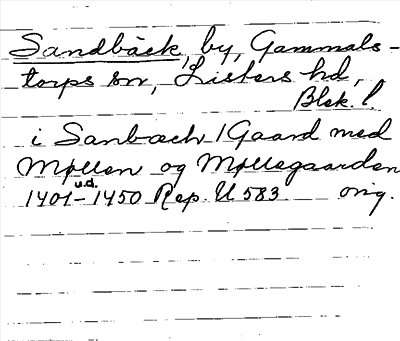 Sandbäck, by, Gammals-
torps sn, Listers hd,
Blek. l.
i Sanbæch 1 Gaard med
Møllen og Møllegaarden
u.d.
1401-1450 Rep. II 583 orig.